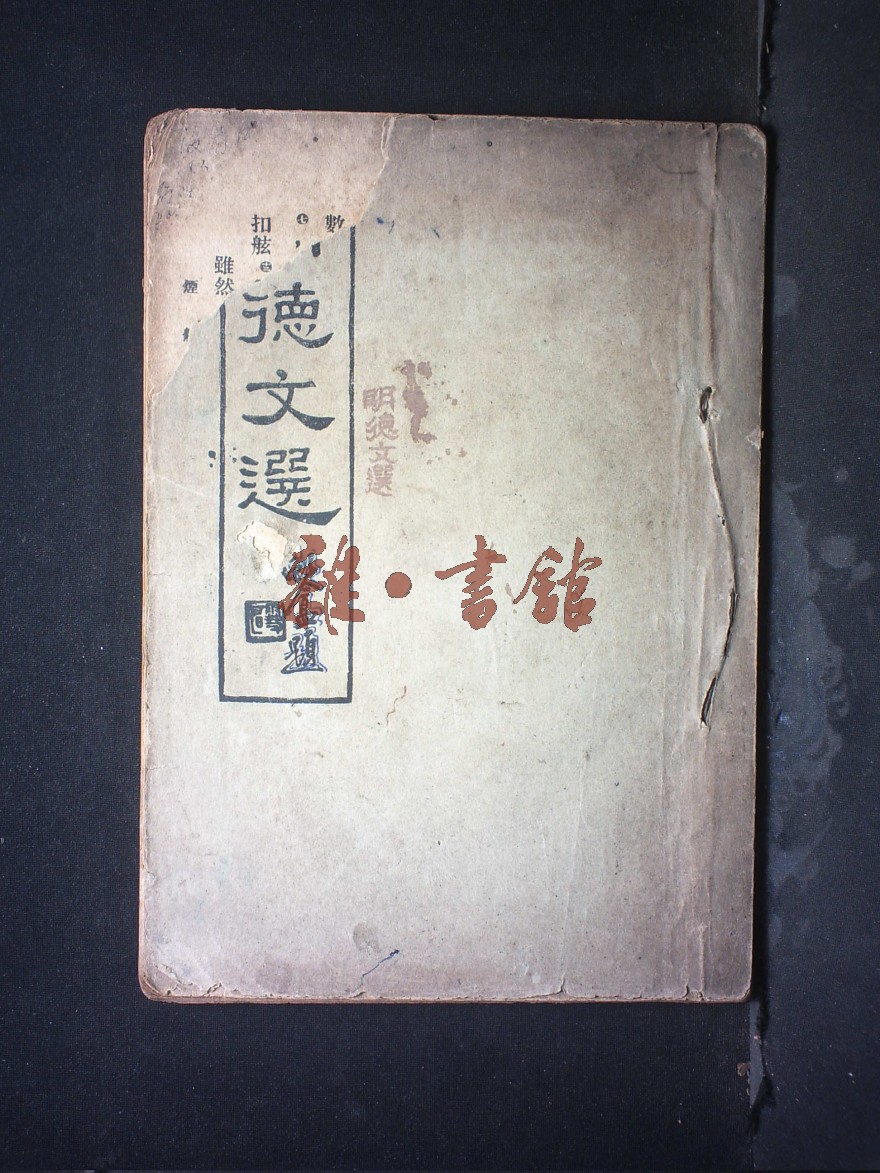 數
七
扣舷
雖然
煙
德文選
題
明德文選
雜·書館